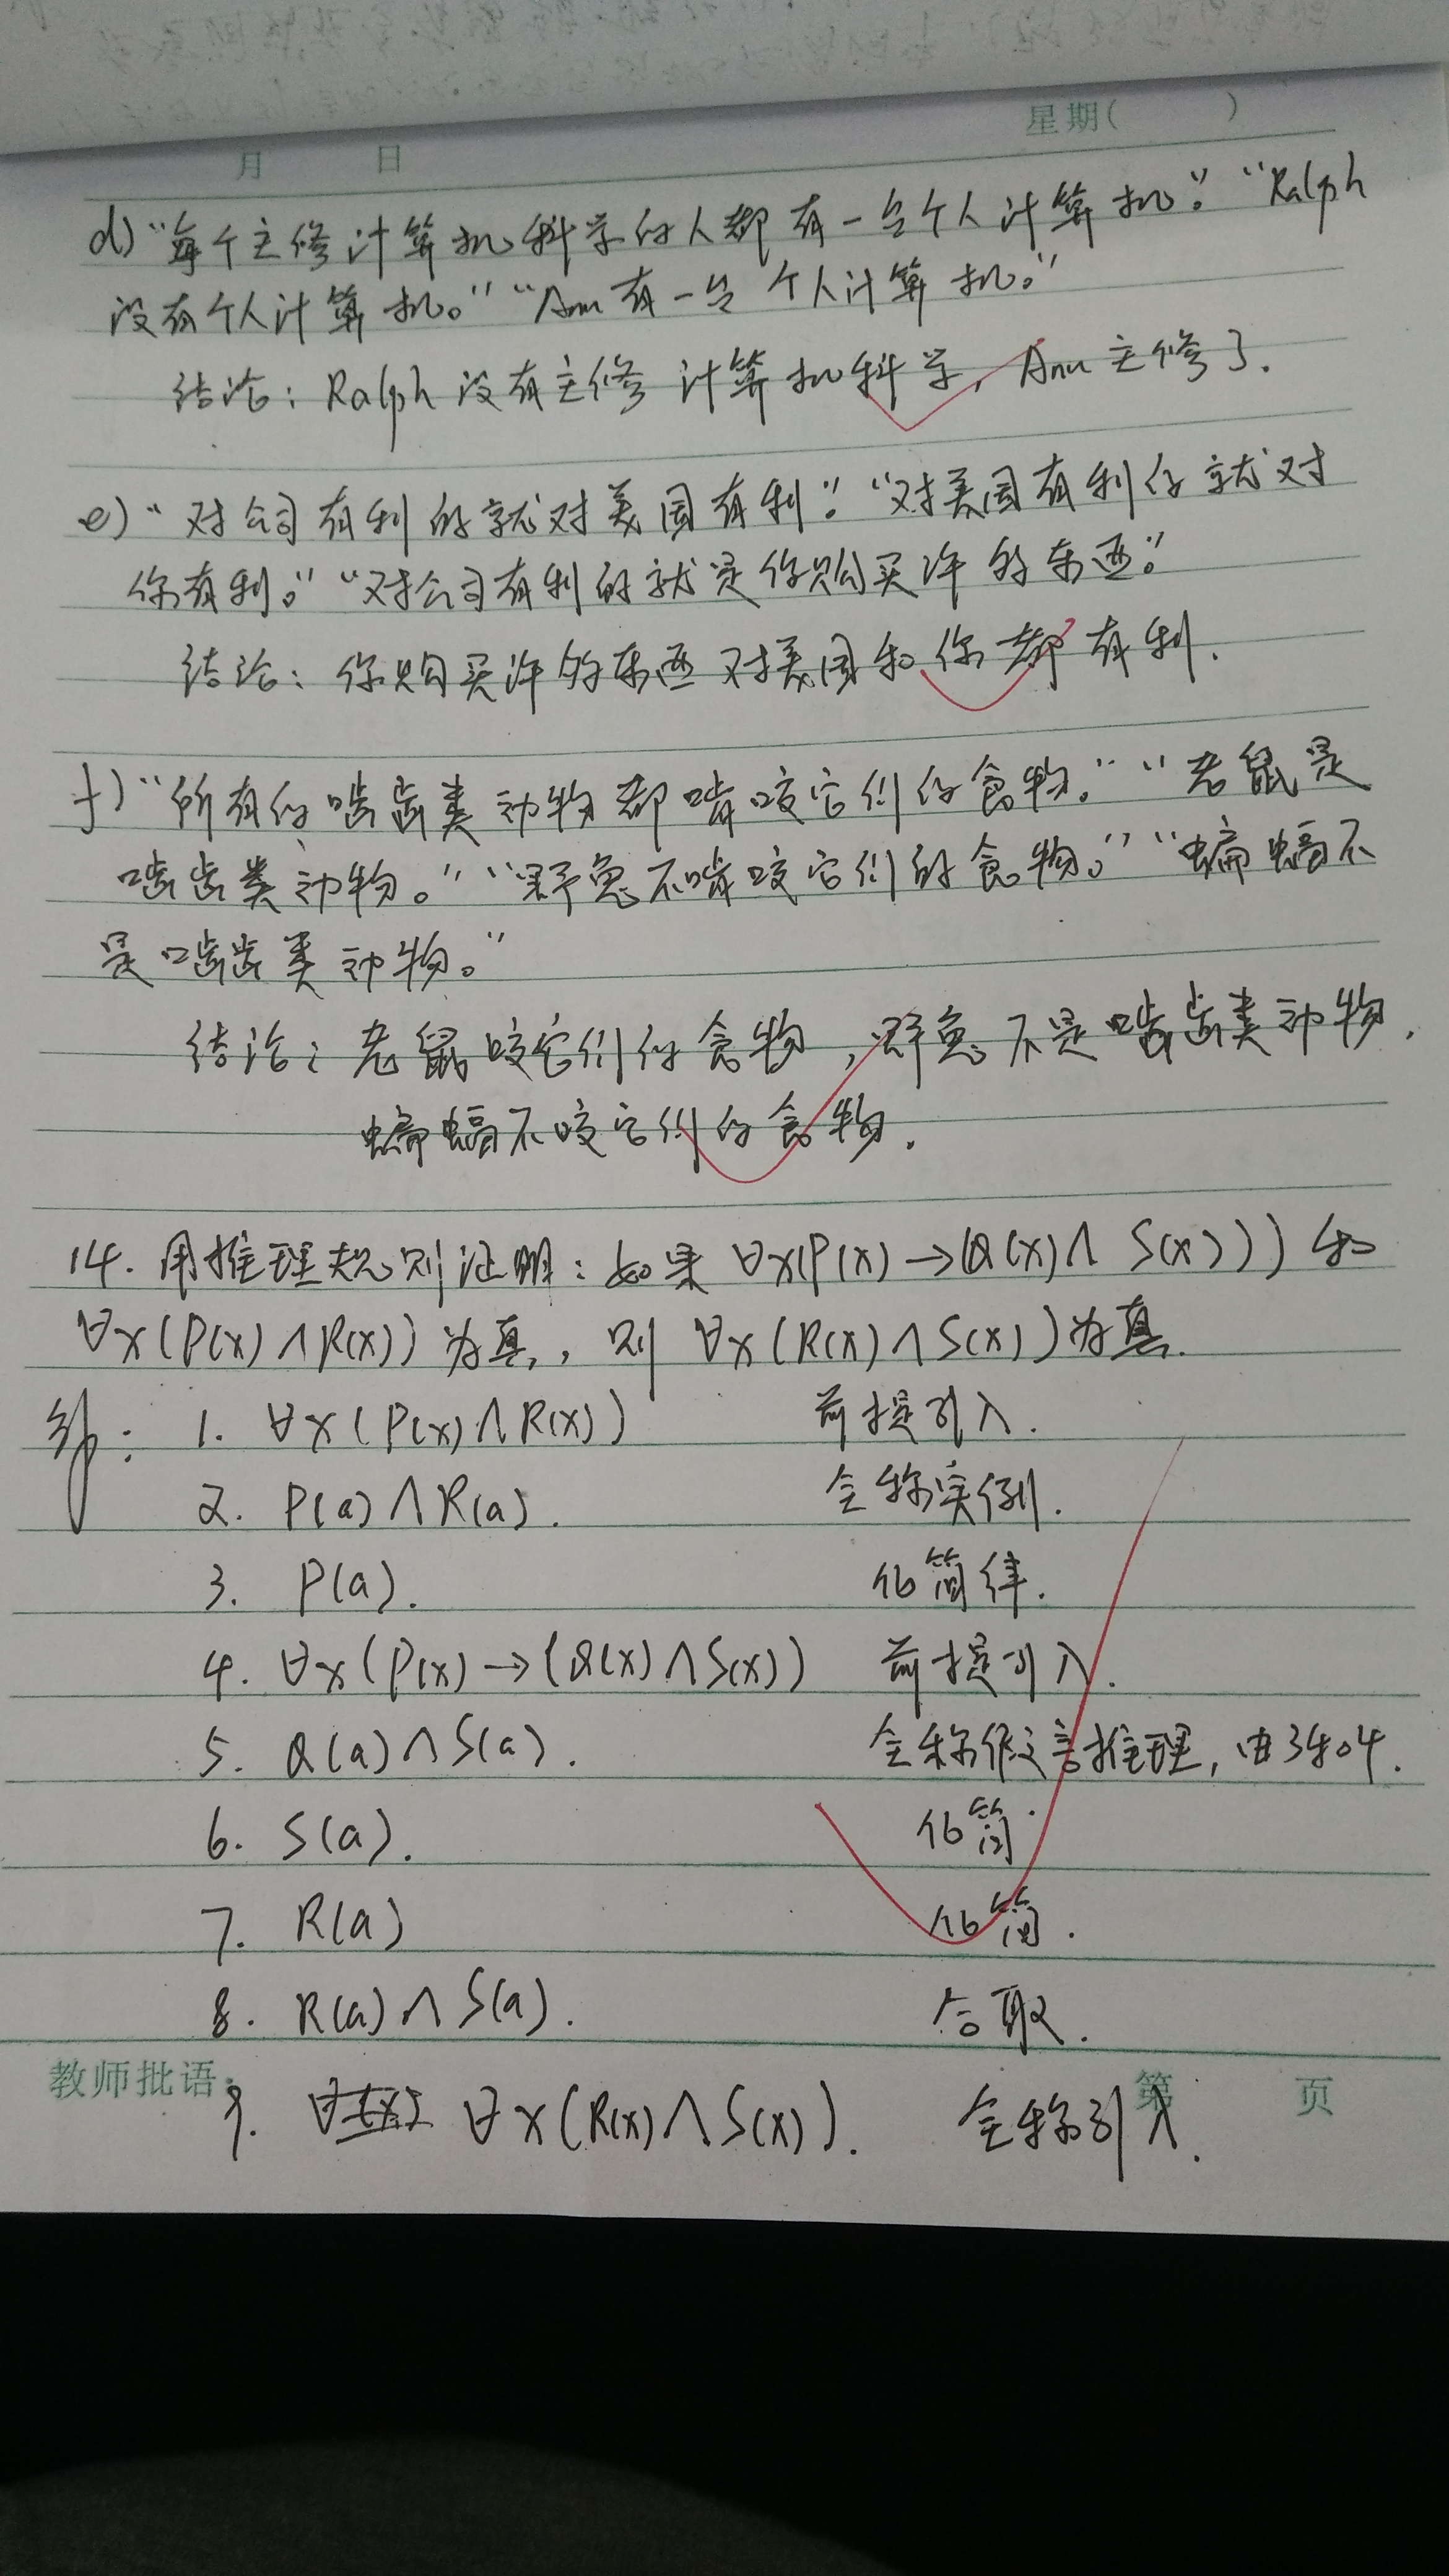 月 日 星期( )
d) “每个主修计算机科学的人都有一台个人计算机。” “Ralph
没有个人计算机。” “Ann有一台个人计算机。”
结论: Ralph 没有主修 计算机科学, Ann 主修了.
e) “对公司有利的就对美国有利。” “对美国有利的就对
你有利。” “对公司有利的就是你购买许的东西。”
结论: 你购买许的东西对美国和你都有利.
f) “所有的啮齿类动物都啃咬它们的食物。” “老鼠是
啮齿类动物。” “野兔不啃咬它们的食物。” “蝙蝠不
是啮齿类动物。”
结论: 老鼠咬它们的食物, 野兔不是啮齿类动物,
蝙蝠不咬它们的食物.
14. 用推理规则证明: 如果 ∀x(P(x)→(Q(x)∧ S(x))) 和
∀x(P(x)∧R(x)) 为真, 则 ∀x(R(x)∧S(x))为真.
解: 1. ∀x(P(x)∧R(x)) 前提引入.
2. P(a)∧R(a). 全称实例.
3. P(a). 化简律.
4. ∀x(P(x)→(Q(x)∧S(x)) 前提引入.
5. Q(a)∧S(a). 全称假言推理, 由3和4.
6. S(a). 化简.
7. R(a) 化简.
8. R(a)∧S(a). 合取.
教师批语: 第 页
9. ∀x(R(x)∧S(x)). 全称引入.